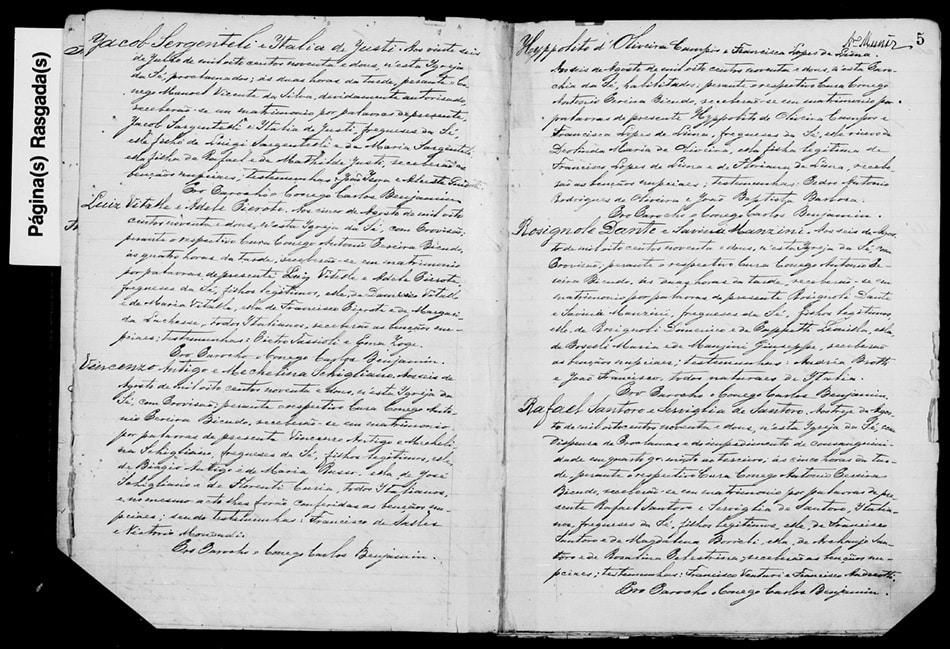 Página(s) Rasgada(s)
Yacob Sergenteli e Italia de Yusti. Aos vinte seis
de Julho de mil oito centos noventa e dous, n'esta Igreja
da Sé, proclamados; ás duas horas da tarde, perante Co-
nego Manoel Vicente da Silva, devidamente autorisado,
receberão-se em matrimonio por palavras de presente
Yacob Sargenteli e Italia de Yusti, freguezes da Sé,
elle filho de Luigi Sargenteli e da Maria Sargenteli
ella filha de Rafael e da Mathilde Yusti, receberão as
bençãos nupciaes; testemunhas: João
Pro Parocho o Conego Carlos Benjamim
Luiz Vitalle e Adele Pierote. Aos cinco de Agosto de mil oito
centos noventa e dous, n'esta Igreja da Sé, com Provisão,
perante o respectivo Cura Conego Antonio Pereira Bicudo,
ás quatro horas da tarde, receberão-se em matrimonio
por palavras de presente Luiz Vitalle e Adele Pierote,
freguezes da Sé, filhos legitimos, elle, de Vitalle
e de Maria Vitalle, ella de Francisco Pierote e da Margari-
da Luchesse, todos Italianos, receberão as bençãos nup-
ciaes; testemunhas: Pietro e
Pro Parocho o Conego Carlos Benjamim.
Vincenzo Antigo e Mechelina Schigliano. Aos seis de
Agosto de mil oito centos noventa e dous, n'esta Igreja da
Sé, com Provisão, perante o respectivo Cura Conego Anto-
nio Pereira Bicudo, receberão-se em matrimonio
por palavras de presente Vincenzo Antigo e Mecheli-
na Schigliano, freguezes da Sé, filhos legitimos, elle
de Biagio Antigo e de Maria, ella de José
Schigliano e de Florenti Curia, todos Italianos,
e no mesmo acto lhes forão conferidas as bençãos nu-
pciaes; sendo testemunhas: Francisco de
e Victorio
Pro Parocho o Conego Carlos Benjamim.
5
Hyppolito d'Oliveira Campos e Francisca Lopes de Lima
Aos seis de Agosto de mil oito centos noventa e dous, n'esta Paro-
chia da Sé, habilitados; perante o respectivo Cura Conego
Antonio Pereira Bicudo, receberão-se em matrimonio por
palavras de presente Hyppolito de Oliveira Campos e
Francisca Lopes de Lima, freguezes da Sé, elle viuvo de
Deolinda Maria de Oliveira, ella filha legitima de
Francisco Lopes de Lima e de de Lima, recebe-
rão as bençãos nupciaes; testemunhas: Pedro Antonio
Rodrigues de Oliveira e João Baptista Barbosa.
Pro Parocho o Conego Carlos Benjamim.
Rosignole Dante e Lavinia Manzini. Aos seis de Agos-
to de mil oito centos noventa e dous, n'esta Igreja da Sé, com
Provisão, perante o respectivo Cura Conego Antonio Pe-
reira Bicudo, ás duas horas da tarde, receberão-se em
matrimonio por palavras de presente Rosignoli Dante
e Lavinia Manzini, freguezes da Sé, filhos legitimos,
elle de Rosignoli e de, ella
de Maria e de Manzini Giuseppe, receberão
as bençãos nupciaes; testemunhas: Andrea
e João Francisco, todos naturaes de Italia.
Pro Parocho o Conego Carlos Benjamim.
Rafael Santoro e Serviglia de Santoro. Aos tres de Agos-
to de mil oito centos noventa e dous, n'esta Igreja da Sé, com
Dispensa de Proclamas e do impedimento de consanguini-
dade em quarto gr. mixto ao terceiro, ás cinco horas da tar-
de, perante o respectivo Cura Conego Antonio Pereira
Bicudo, receberão-se em matrimonio por palavras de pre-
sente Rafael Santoro e Serviglia de Santoro, Italia-
nos, freguezes da Sé, filhos legitimos, elle, de Francisco
Santoro e de Magdalena, ella, de San-
toro e de Rosalina, receberão as bençãos nu-
pciaes; testemunhas: Francisco Venturi e Francisco
Pro Parocho o Conego Carlos Benjamim.